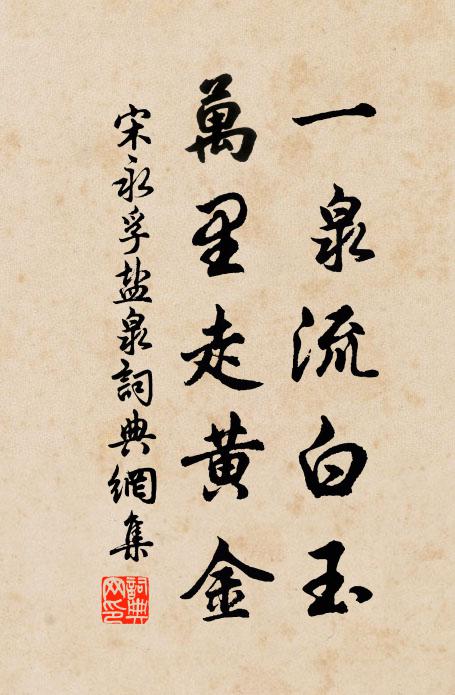 一泉流白玉
萬里走黄金
宋永孚盐泉詞典網集
詞典网印